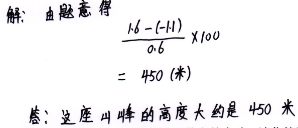 解：由题意得
1.6-(-1.1)/0.6 ×100
= 450 (米)
答：这座山峰的高度大约是 450 米